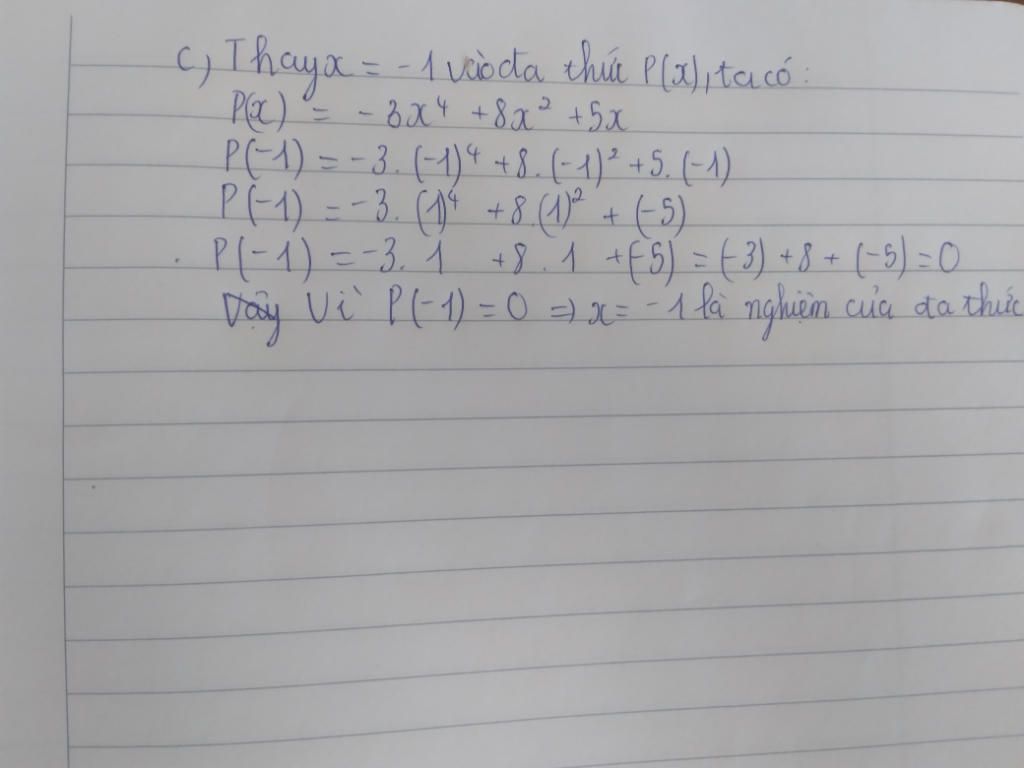 c, Thay x = -1 vào đa thức P(x), ta có:
P(x) = -3x⁴ +8x² +5x
P(-1) = -3.(-1)⁴ +8.(-1)² +5.(-1)
P(-1) = -3.(1)⁴ +8.(1)² + (-5)
P(-1) = -3.1 +8.1 +(-5) = (-3)+8+(-5)=0
Vậy Vì P(-1) = 0 ⇒ x = -1 là nghiệm của đa thức